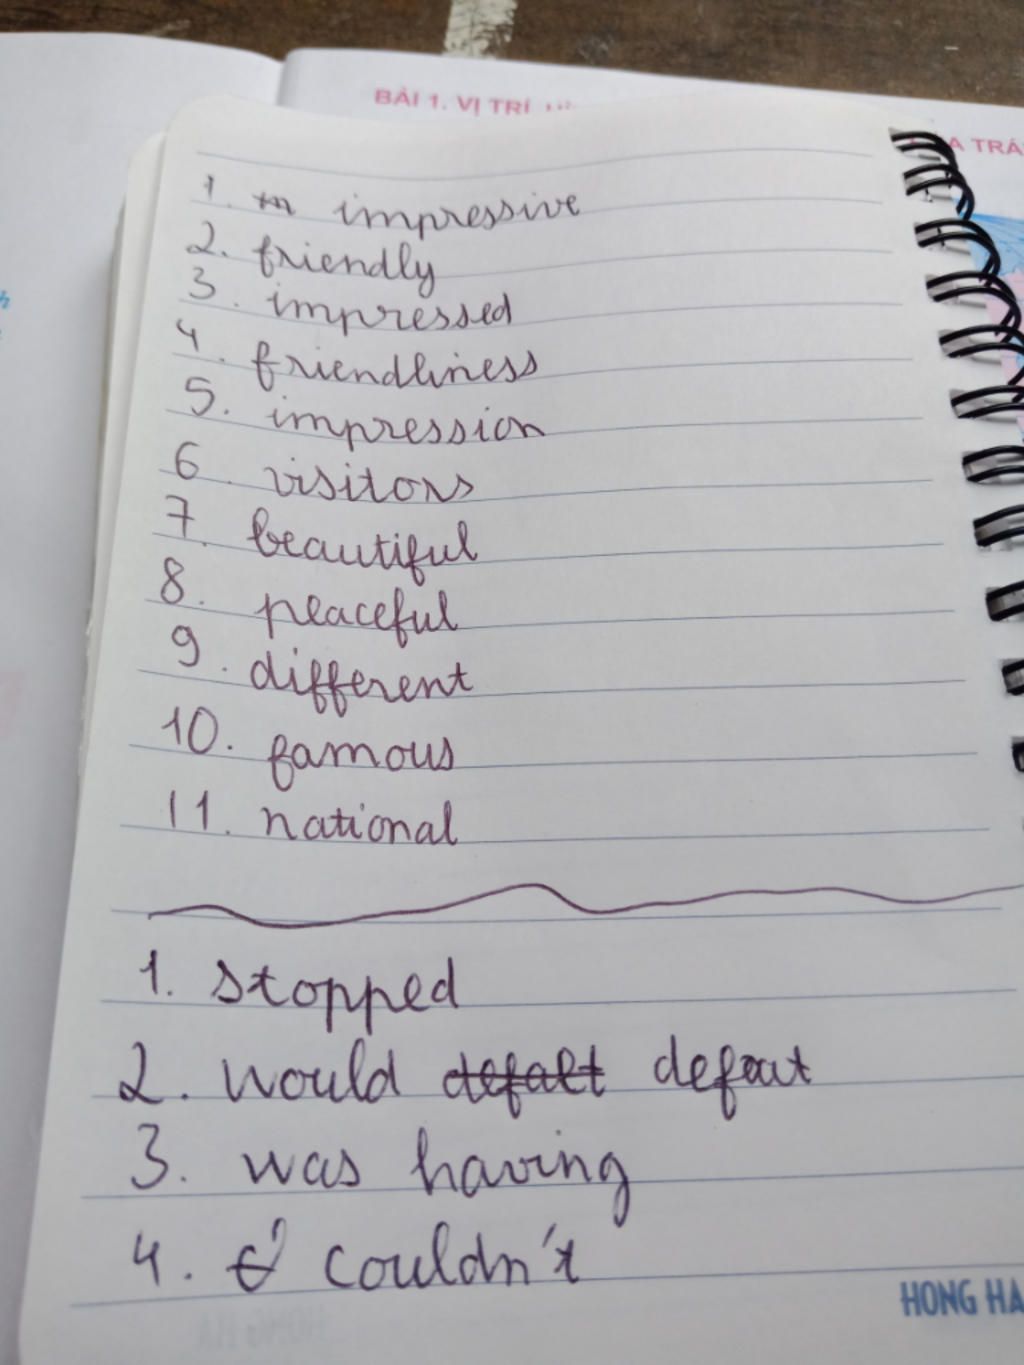 BÀI 1. VỊ TRÍ
A TRÁ
1. impressive
2. friendly
3. impressed
4. friendliness
5. impression
6. visitors
7. beautiful
8. peaceful
9. different
10. famous
11. national
1. stopped
2. would defalt defeat
3. was having
4. couldn't
HONG HA